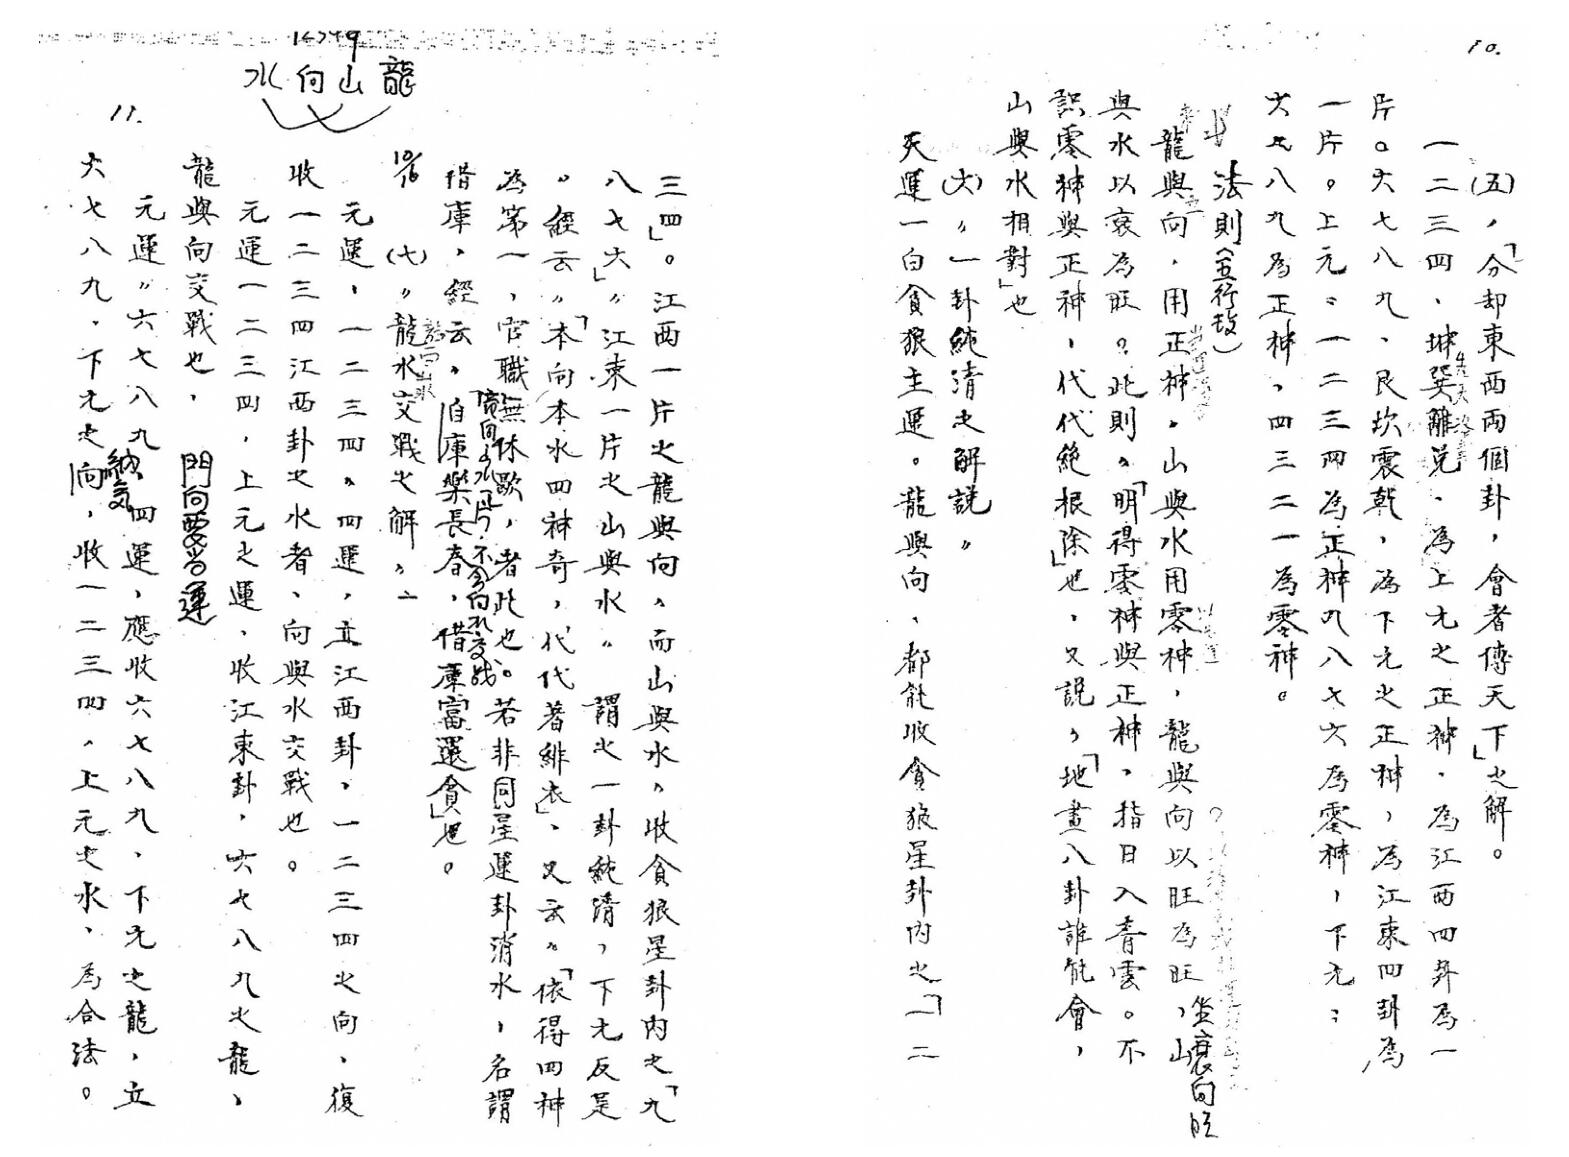 10.
(五)，「分却東西兩個卦，會者傳天下」之解。
一二三四、坤巽離兌、為上元之正神、為江西四卦為一
片。六七八九、艮坎震乾，為下元之正神，為江東四卦為
一片。上元：一二三四為正神九八七六為零神，下元：
六七八九為正神，四三二一為零神。
法則(五行技)
龍與向，用正神，山與水用零神，龍與向以旺為旺，山
坐衰向旺
與水以衰為旺。此則，「明得零神與正神，指日入青雲。不
識零神與正神，代代絕根除」也，又說，「地畫八卦誰能會，
山與水相對」也
(六)〃一卦純清之解說〃
天運一白貪狼主運。龍與向，都能收貪狼星卦內之「一二
16749
龍山向水
11.
三四」。江西一片之龍與向，而山與水，收貪狼星卦內之「九
八七六」〃江東一片之山與水〃謂之一卦純清，下元反是
。經云〃「本向本水四神奇，代代著緋衣」、又云〃「依得四神
為第一，官職無休歇，者此也。若非同星運卦消水，名謂
借庫，經云，「自庫樂長春，借庫富還貧」也。
不合向水交战
10/16
(七)〃龍水交戰之解〃
元運，一二三四〃四運，立江西卦，一二三四之向，復
收一二三四江西卦之水者、向與水交戰也。
元運一二三四，上元之運，收江東卦，六七八九之龍，
龍與向交戰也，
門向要当運
元運〃六七八九四運，應收六七八九，下元之龍，立
納氣
六七八九，下元之向，收一二三四，上元之水，為合法。